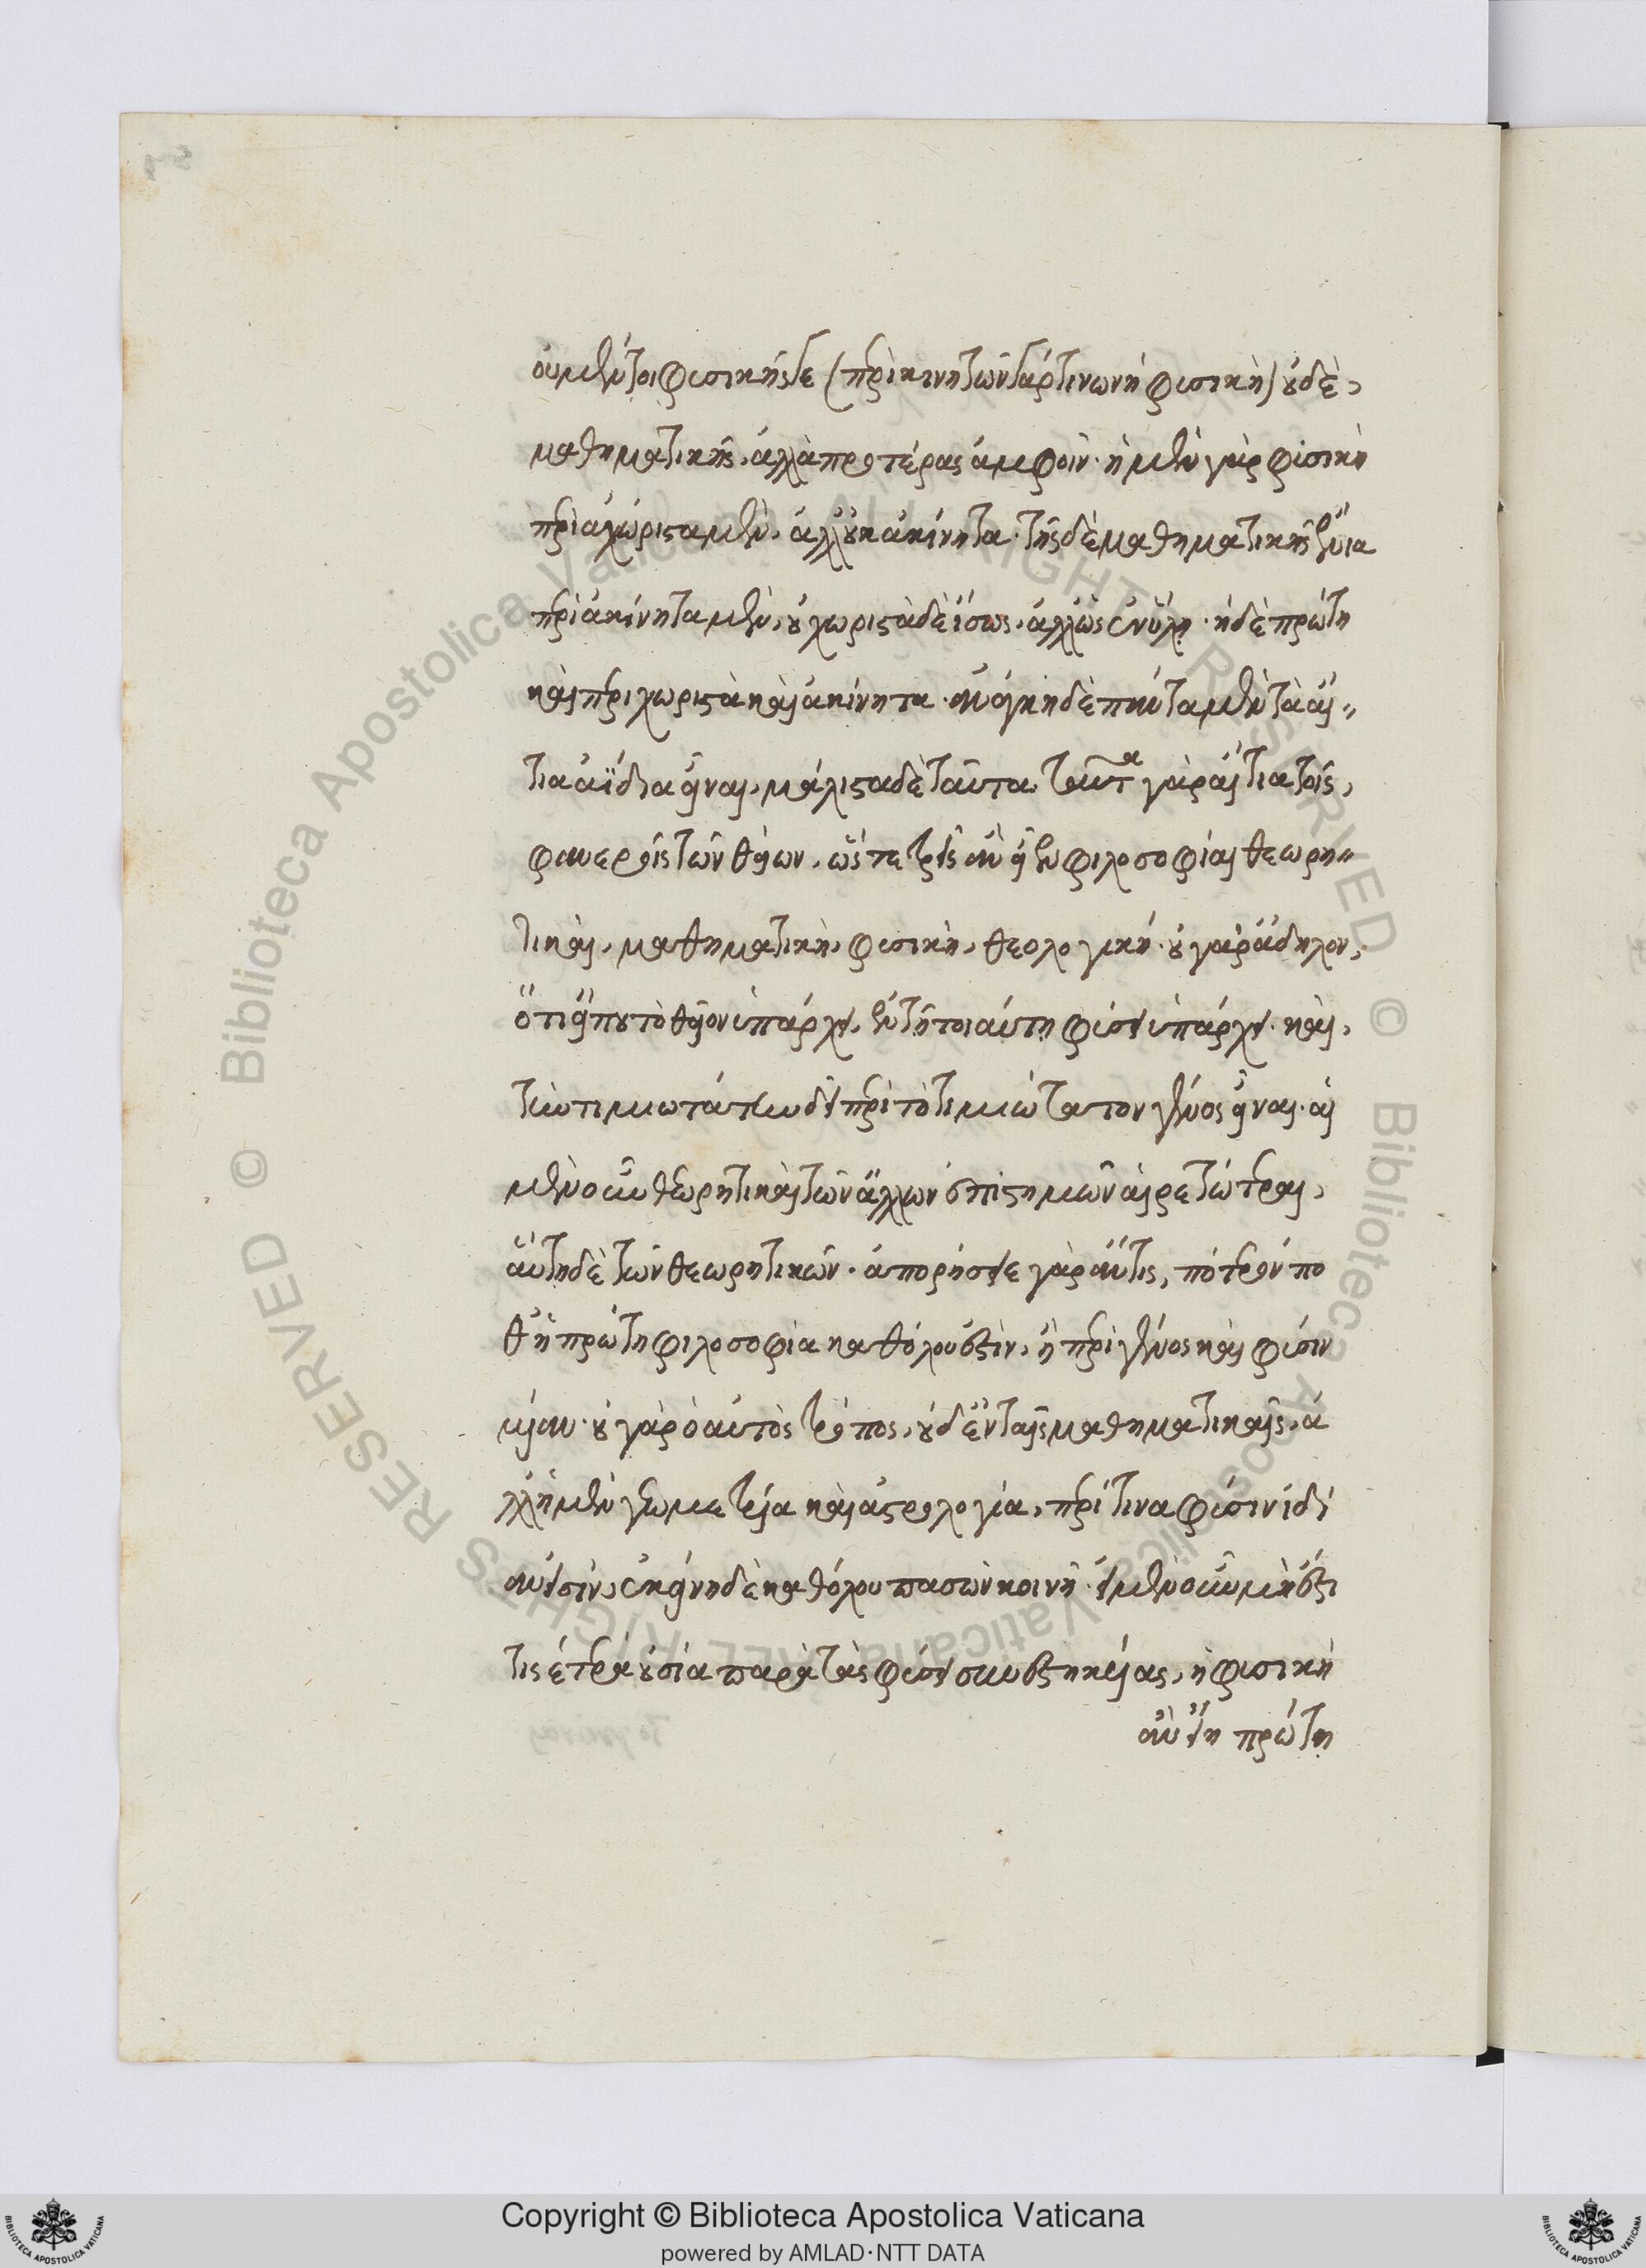 οὐ μέντοι φυσικῆς γε (περὶ κινητῶν γάρ τινων ἡ φυσικὴ) οὐδὲ,
μαθηματικῆς, ἀλλὰ προτέρας ἀμφοῖν. ἡ μὲν γὰρ φυσικὴ
περὶ ἀχώριστα μὲν, ἀλλ' οὐκ ἀκίνητα. τῆς δὲ μαθηματικῆς ἔνια
περὶ ἀκίνητα μὲν, οὐ χωριστὰ δὲ ἴσως, ἀλλ' ὡς ἐν ὕλῃ. ἡ δὲ πρώτη
καὶ περὶ χωριστὰ καὶ ἀκίνητα. ἀνάγκη δὲ πάντα μὲν τὰ αἴ〃
τια ἀΐδια εἶναι, μάλιστα δὲ ταῦτα. ταῦτα γὰρ αἴτια τοῖς,
φανεροῖς τῶν θείων. ὥστε τρεῖς ἂν εἶεν φιλοσοφίαι θεωρη〃
τικαὶ, μαθηματικὴ, φυσικὴ, θεολογική. οὐ γὰρ ἄδηλον,
ὅτι εἴ που τὸ θεῖον ὑπάρχει, ἐν τῇ τοιαύτῃ φύσει ὑπάρχει. καὶ,
τὴν τιμιωτάτην δεῖ περὶ τὸ τιμιώτατον γένος εἶναι. αἱ
μὲν οὖν θεωρητικαὶ τῶν ἄλλων ἐπιστημῶν αἱρετώτεραι,
αὕτη δὲ τῶν θεωρητικῶν. ἀπορήσειε γὰρ ἄν τις, πότερόν πο
θ' ἡ πρώτη φιλοσοφία καθόλου ἐστὶν, ἢ περὶ γένος καὶ φύσιν
μίαν. οὐ γὰρ ὁ αὐτὸς τρόπος, οὐδ' ἐν ταῖς μαθηματικαῖς, ἀ
λλ' ἡ μὲν γεωμετρία καὶ ἀστρολογία, περί τινα φύσιν ἰδί
αν εἰσὶν, ἐκείνη δὲ καθόλου πασῶν κοινή. εἰ μὲν οὖν μὴ ἔστι
τις ἑτέρα οὐσία παρὰ τὰς φύσει συνεστηκυίας, ἡ φυσικὴ
ἂν εἴη πρώτη
Copyright © Biblioteca Apostolica Vaticana
powered by AMLAD·NTT DATA